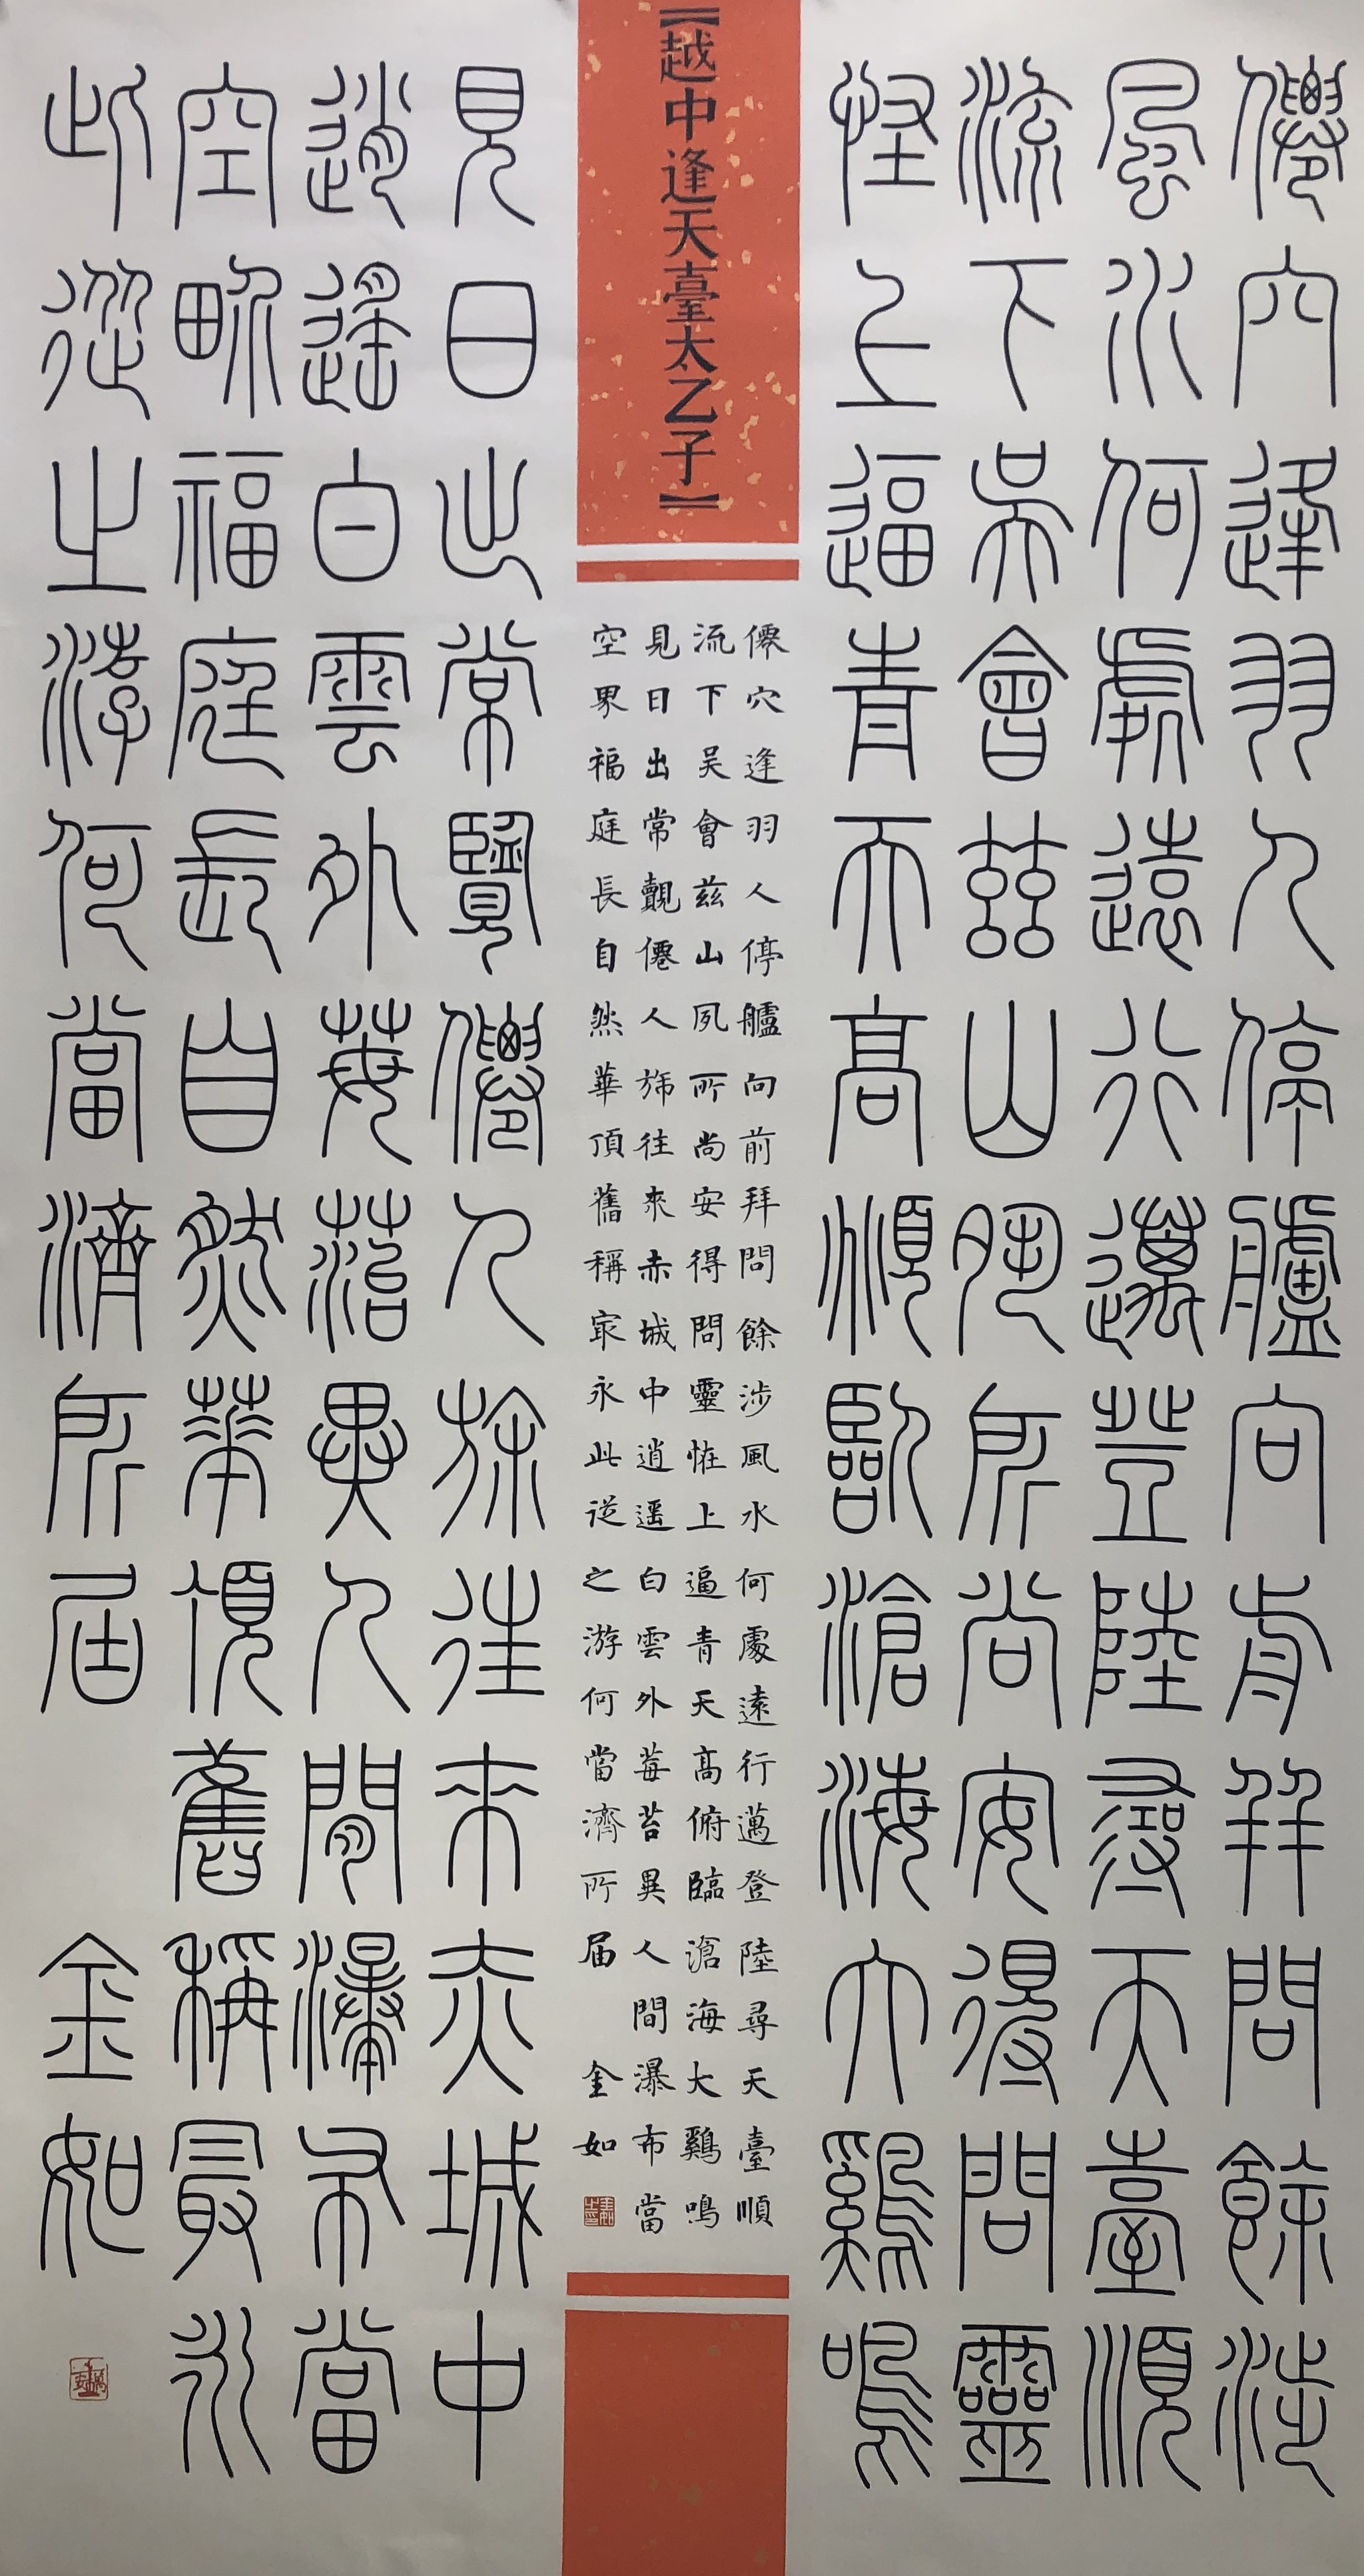 僊穴逢羽人停艫向前拜問餘涉
風水何處遠行邁登陸尋天臺順
流下吳會茲山夙所尚安得問靈
怪上逼青天高俯臨滄海大鷄鳴
【越中逢天臺太乙子】
僊穴逢羽人停艫向前拜問餘涉風水何處遠行邁登陸尋天臺順
流下吳會茲山夙所尚安得問靈恠上逼青天高俯臨滄海大鷄鳴
見日出常覿僊人旆往來赤城中逍遥白雲外莓苔異人間瀑布當
空界福庭長自然華頂舊稱冣永此従之游何當濟所届 金如
見日出常覽僊人旆往來赤城中
逍遙白雲外莓苔異人間瀑布當
空界福庭長自然華頂舊稱最永
此從之游何當濟所屆 金如